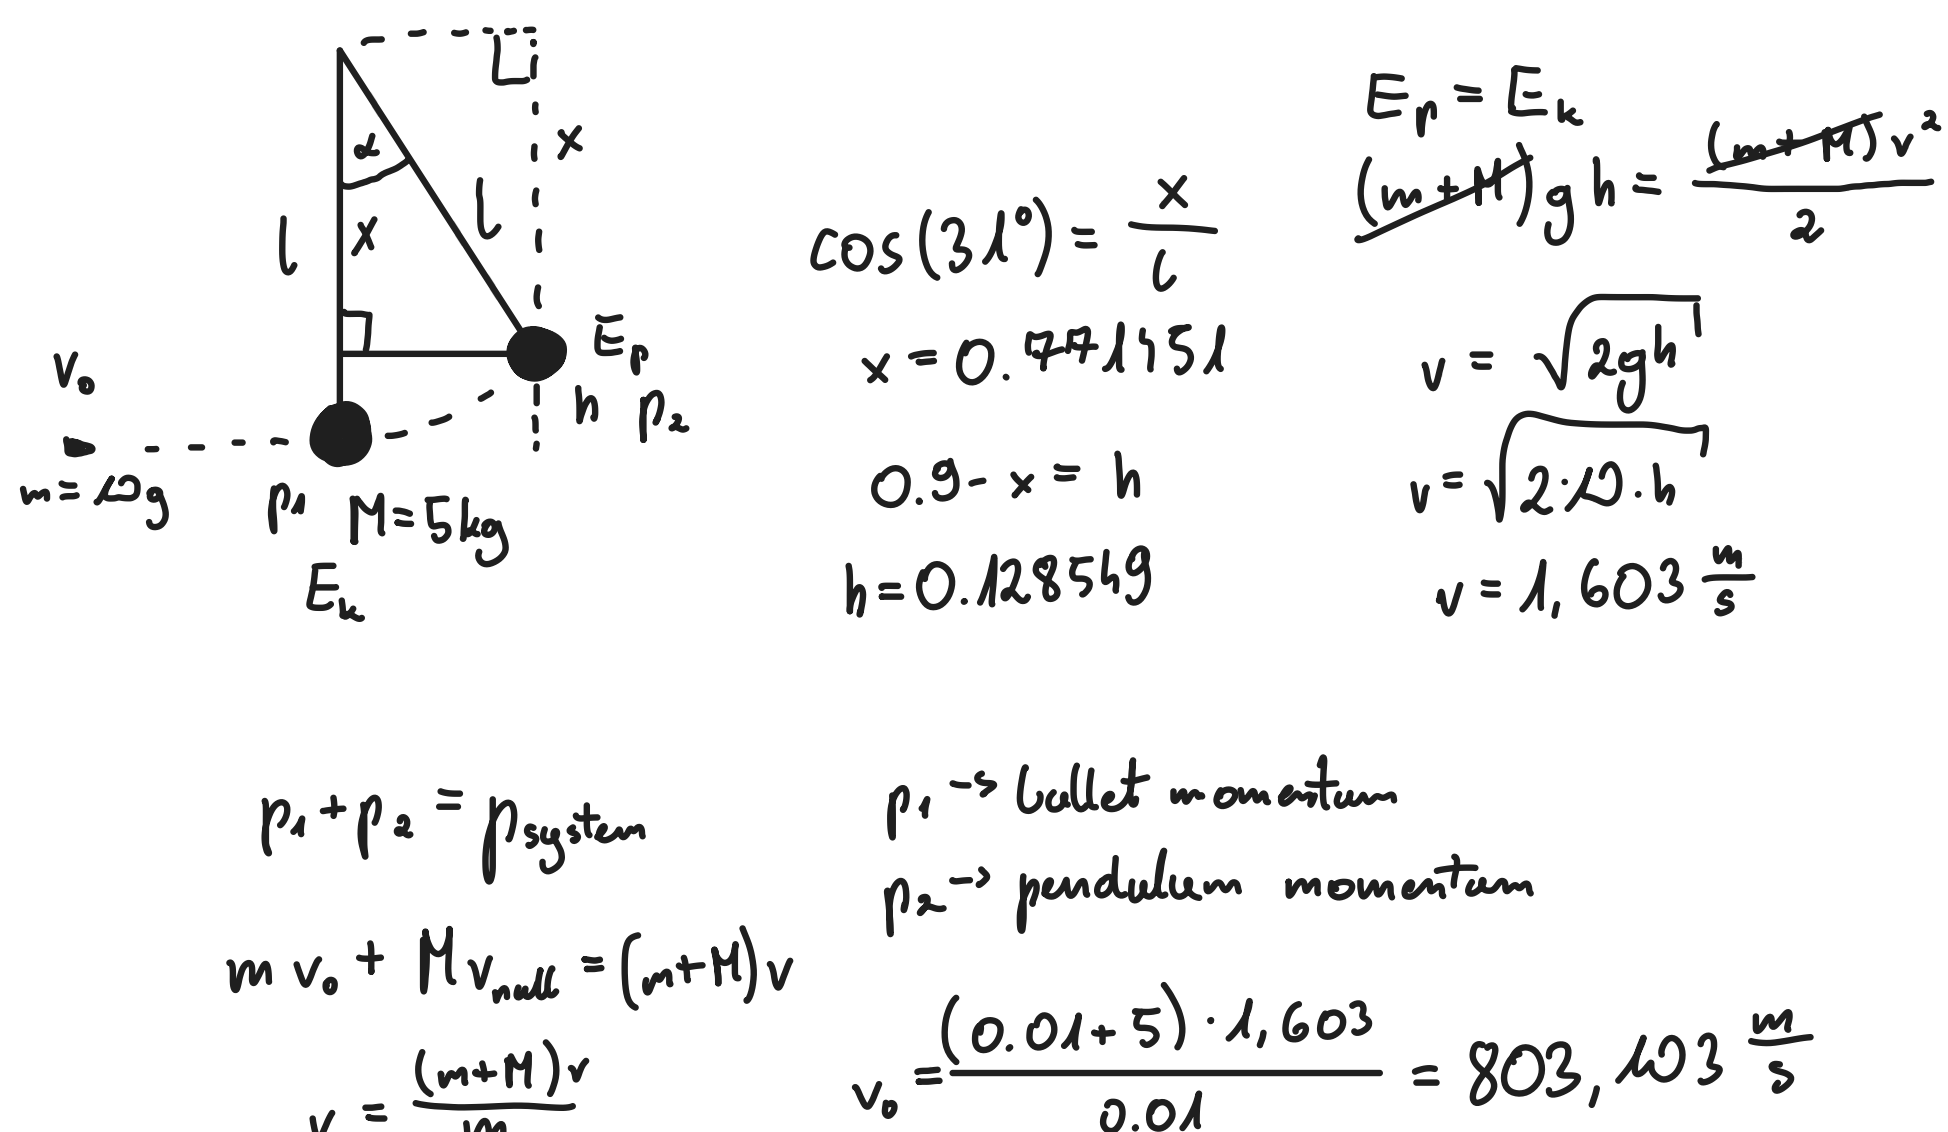 α
x
l
x
l
v₀
m = 10g
p₁
M = 5kg
E_k
E_p
h
p₂
cos(31°) = x / l
x = 0.771451
0.9 - x = h
h = 0.128549
E_p = E_k
(m+M)gh = (m+M)v² / 2
v = √2gh
v = √2·10·h
v = 1,603 m/s
p₁ + p₂ = p_system
m v₀ + M v_null = (m+M)v
v = (m+M)v / m
p₁ → bullet momentum
p₂ → pendulum momentum
v₀ = (0.01+5)·1,603 / 0.01 = 803,103 m/s